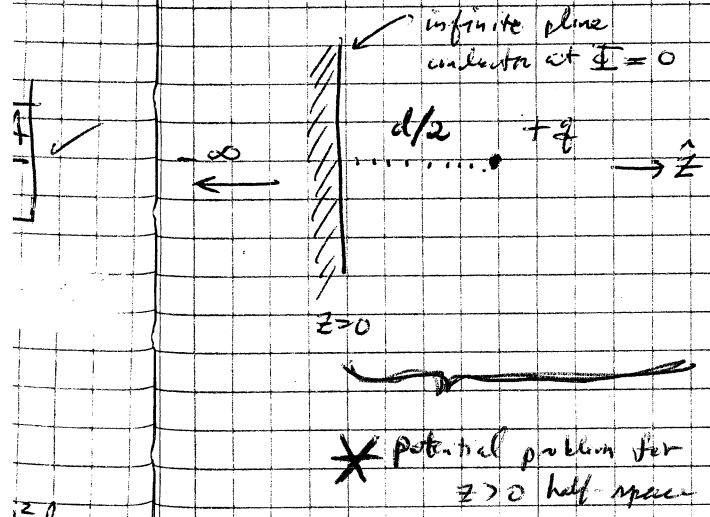 infinite plane
conductor at Φ = 0
d/2 +q
- ∞
ẑ
z=0
* potential problem for
z>0 half-space